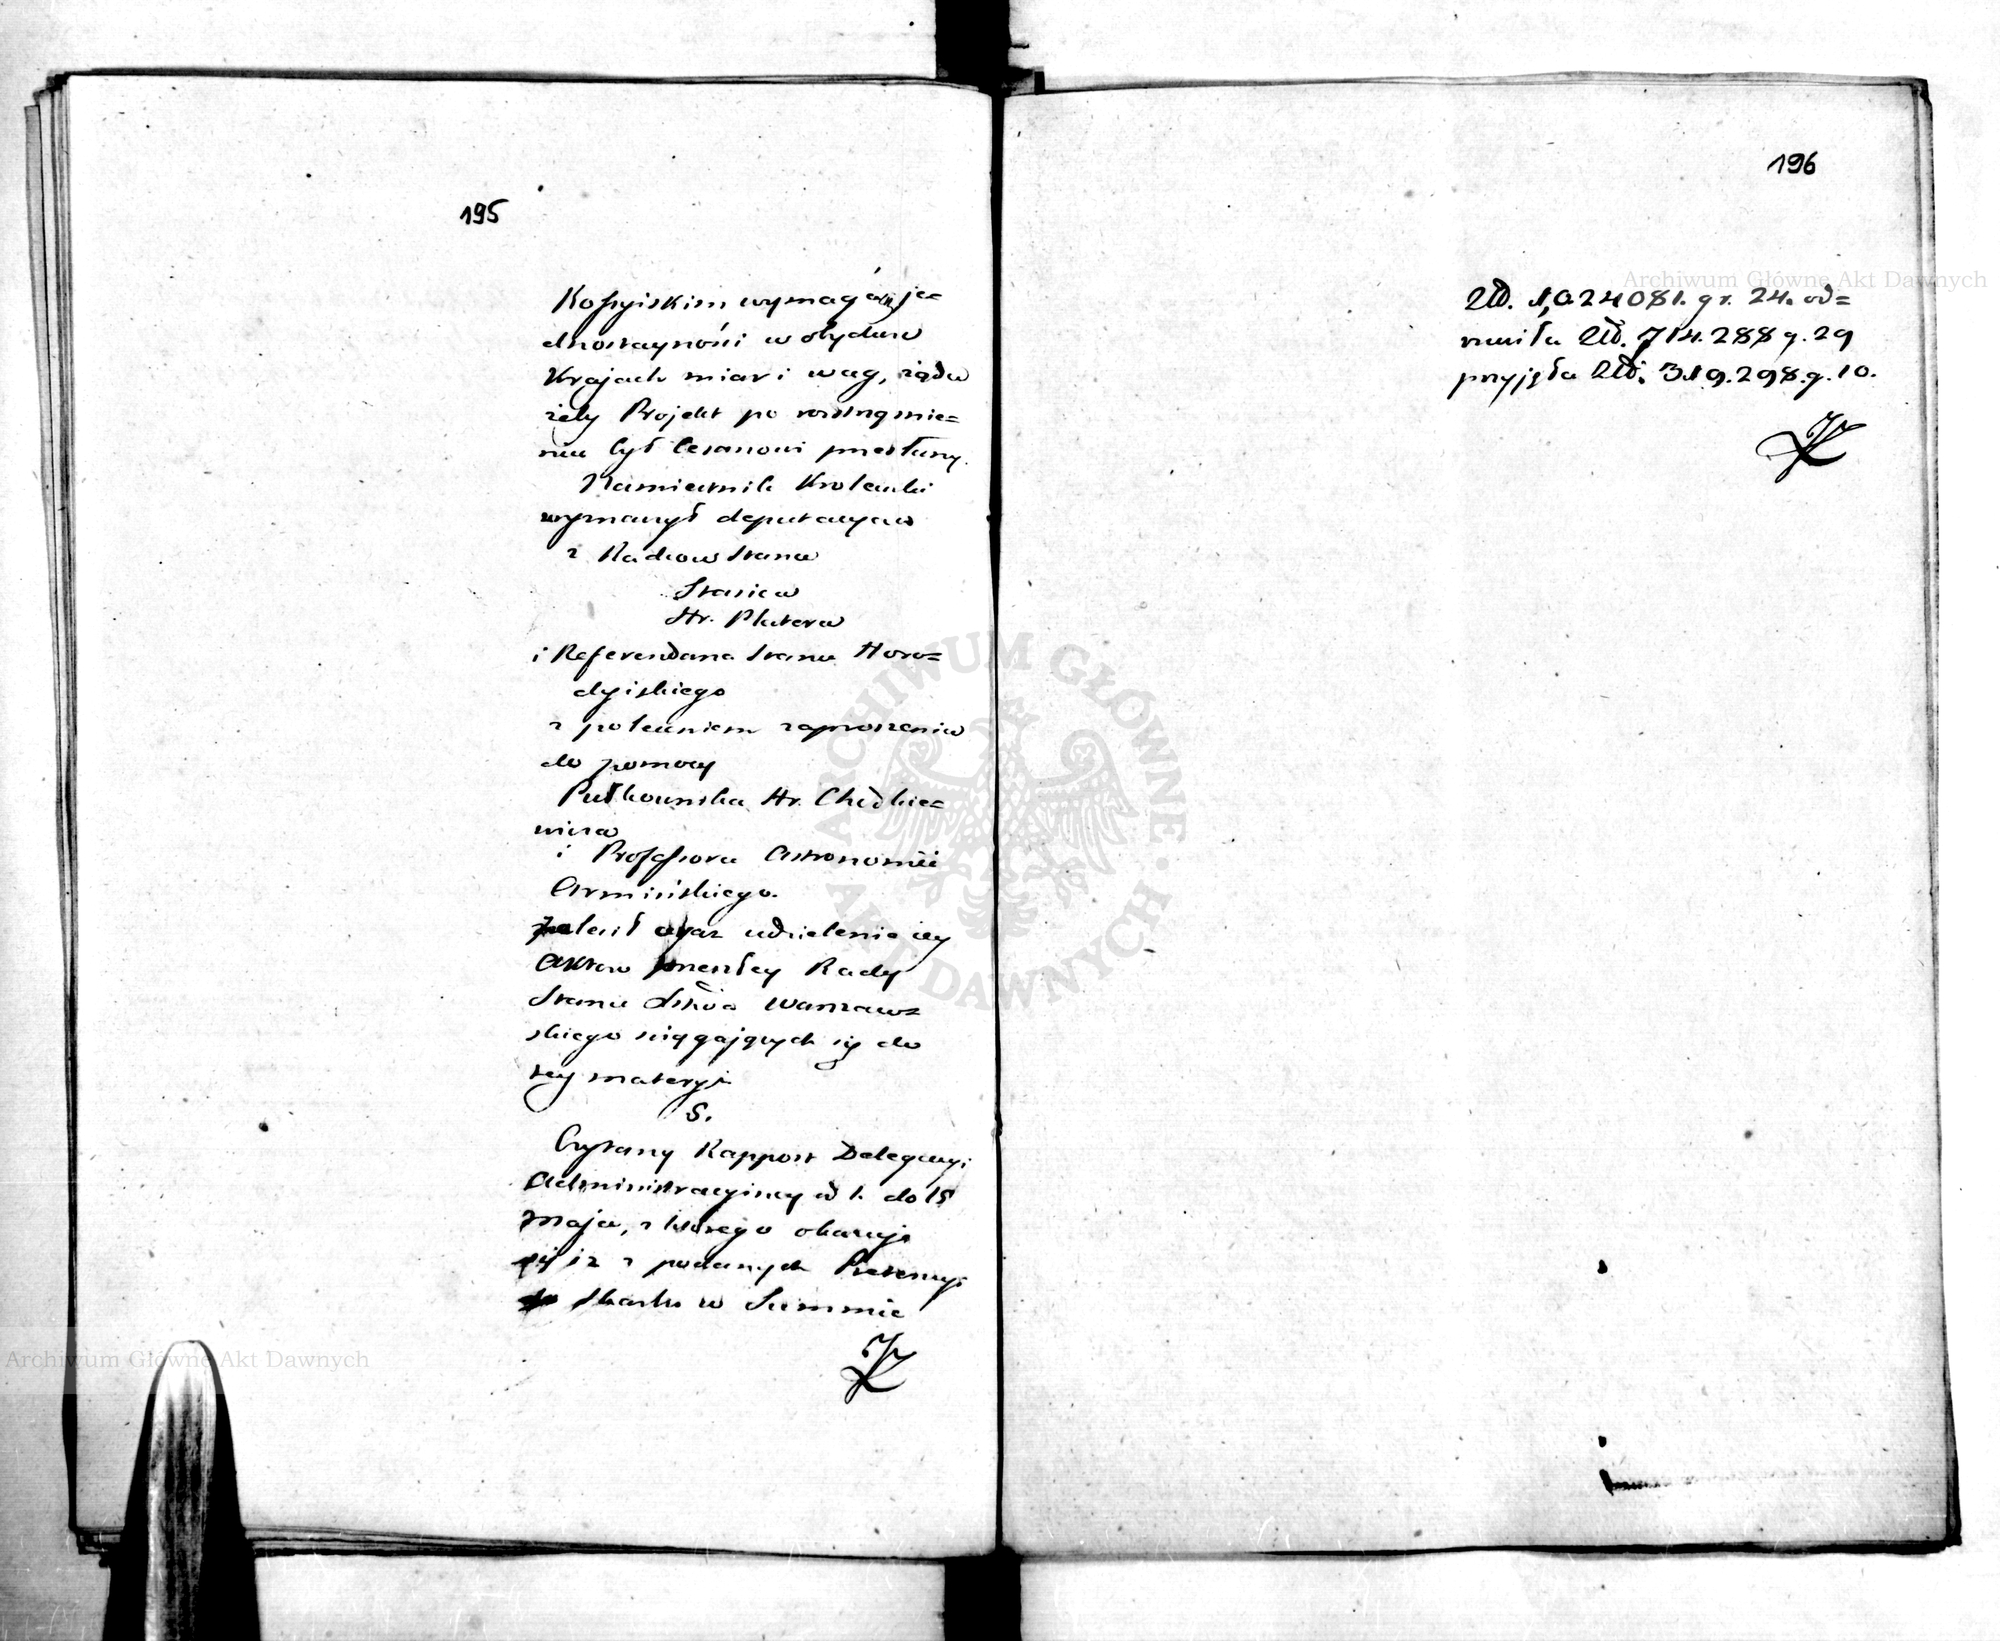 195
Rossyiskim wymaga je=
dnostayności w obydwu
Krajach miar i wag, żąda
żeby Projekt po rostrząśnie=
niu był Cesarzowi przesłany.
Namiestnik Krolewski
wyznaczył deputacyą
z Radców Stanu
Stasica
Hr. Platera
i Referendarza Stanu Horo=
dyiskiego
z poleceniem zaproszenia
do pomocy
Pułkownika Hr. Chodkie=
wicza
i Professora Astronomii
Armińskiego.
zalecił oraz udzielenie iey
Aktów przeszłey Rady
Stanu Xstwa Warszaw=
skiego ściągających się do
tey materyi
5.
Czytany Rapport Delegacyi
Administracyiney od 1. do 15
Maja, z którego okazuje
się iż z podanych Pretensyi
Skarbu w Summie
196
Złł. 1,024081. gr. 24. od=
rzuciła Złł. 714.288 g. 29
przyjęła Złł. 319.298. g. 10.
Archiwum Główne Akt Dawnych
Archiwum Główne Akt Dawnych
ARCHIWUM GŁÓWNE AKT DAWNYCH